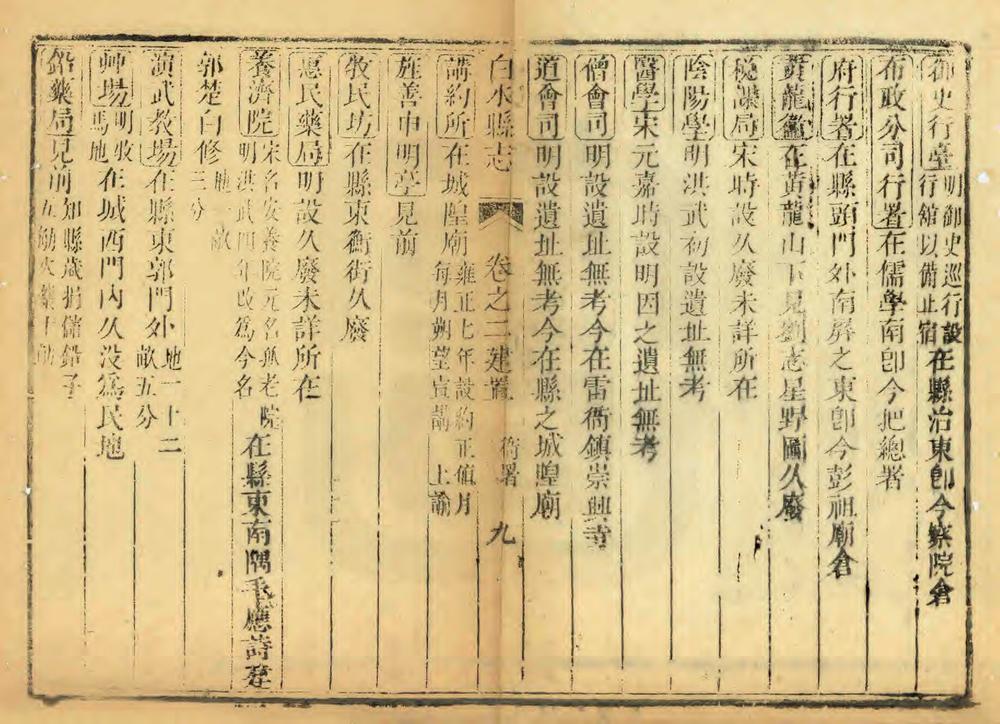 御史行臺明御史巡行設行舘以備止宿在縣治東卽今察院倉
布政分司行署在儒學南卽今把總署
府行署在縣頭門外南屏之東卽今彭祖廟倉
黃龍鑑在黃龍山下見劉志星野圖久廢
局宋時設久廢未詳所在
陰陽學明洪武初設遺址無考
醫學宋元嘉時設明因之遺址無考
僧會司明設遺址無考今在雷衙鎮崇興寺
道會司明設遺址無考今在縣之城隍廟
白水縣志 卷之二建置 衙署 九
講約所在城隍廟雍正七年設約正値月每月朔望宣講 上諭
旌善申明亭見前
敎民坊在縣東衙街久廢
惠民藥局明設久廢未詳所在
養濟院宋名安養院元名孤老院明洪武四年改爲今名在縣東南隅毛應詩建
郭楚白修地一畝三分
演武敎場在縣東郭門外地一十二畝五分
艸場明牧馬地在城西門內久没爲民地
鉛藥局見前知縣歲捐儲鉛子五觔火藥十觔